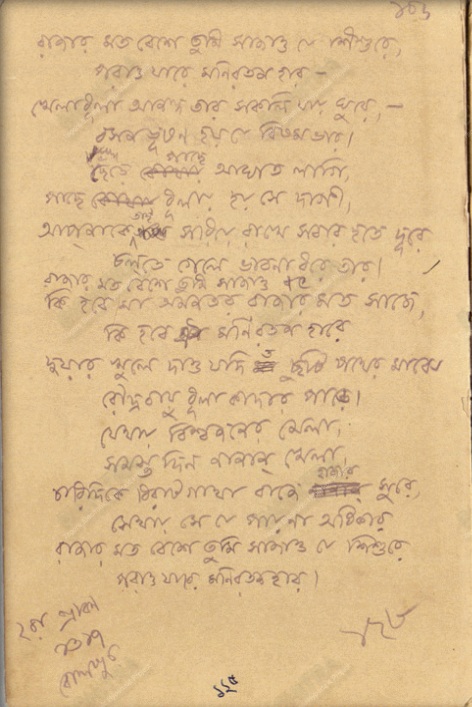 ১০১
রাজার মত বেশে তুমি সাজাও যে শিশুরে,
পরাও যারে মনিরতন হার –
খেলাধূলা আনন্দ তার সকলি যায় ঘুরে, –
বসন ভূষণ হয় যে বিষম ভার।
ছেঁড়ে পাছে আঘাত লাগি,
পাছে ধূলায় হয় সে দাগী,
আপনাকে তাই সরিয়ে রাখে সবার হতে দূরে
চলতে গেলে ভাবনা ধরে তার।
রাজার মত বেশে তুমি সাজাও
কি হবে মা অমনতর রাজার মত সাজে,
কি হবে মনিরতন হারে
দুয়ার খুলে দাও যদি ত ছুটি পথের মাঝে
রৌদ্রবায়ু ধূলা কাদার পাড়ে।
যেথায় বিশ্বজনের মেলা,
সমস্ত দিন নানান্ খেলা,
চারিদিকে বিরাট গাথা বাজে হাজার সুরে,
সেথায় সে যে পায়না অধিকার
রাজার মত বেশে তুমি সাজাও যে শিশুরে
পরাও যারে মনিরতন হার।
২রা শ্রাবণ
১৩১৭
বোলপুর
১২৫